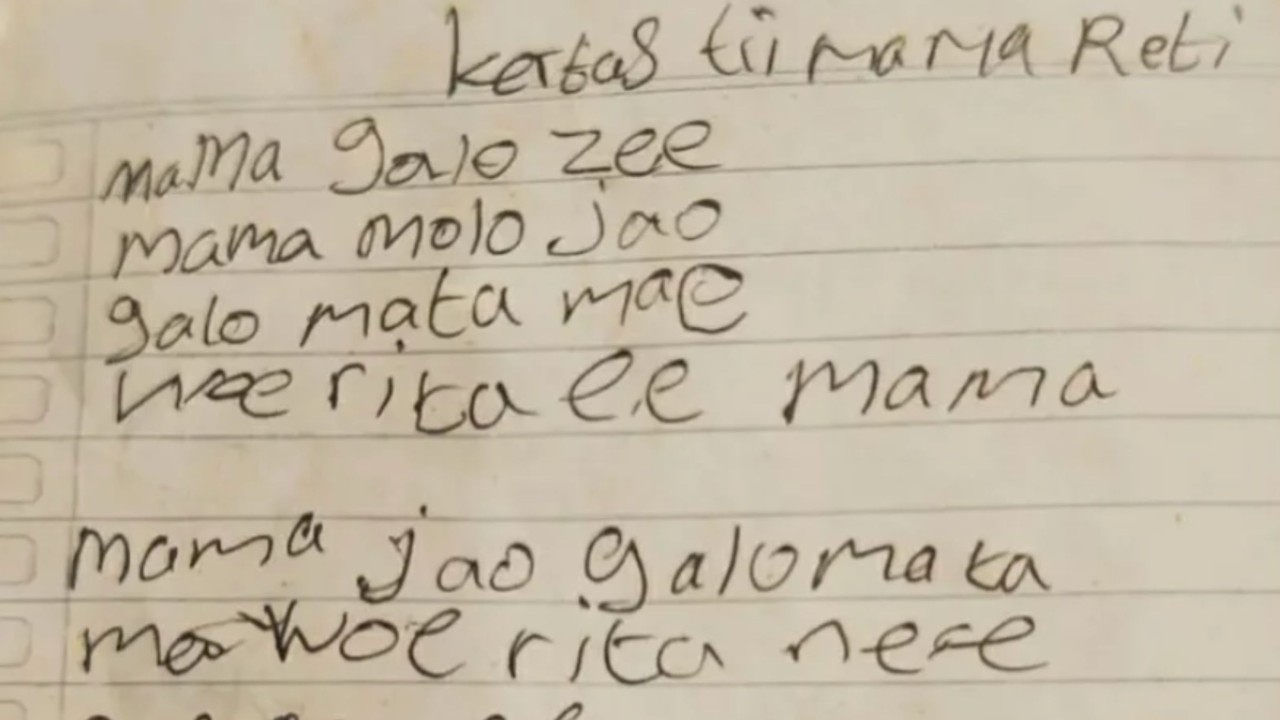 kertas tii mama Reti
mama galo zee
mama molo jao
galo mata mae
woe rita ee mama
mama jao galo mata
mae woe rita ne ee